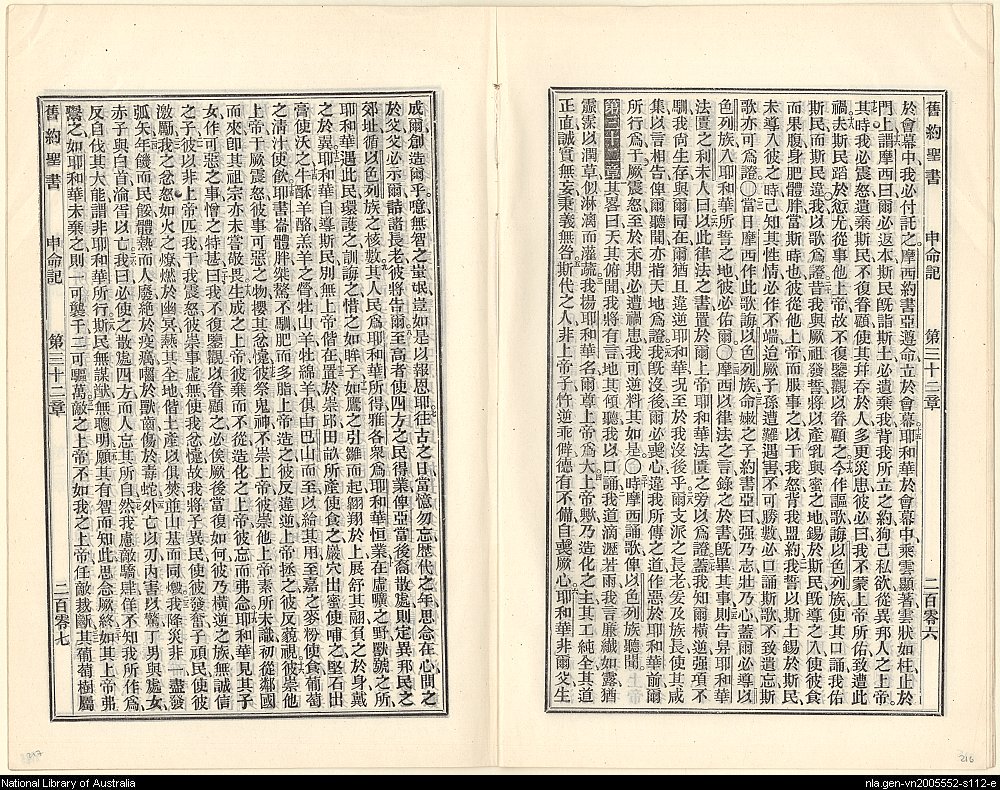 舊約聖書 申命記 第三十二章 二百零六
於會幕中我必付託之摩西約書亞遵命立於會幕耶和華於會幕中乘雲顯著雲狀如柱止於
門上謂摩西曰爾必返本斯民既詣斯土必遺棄我背我所立之約狥己私欲從異邦人之上帝
其時我必震怒遺棄斯民不復眷顧使其幷吞於人多更災患彼必曰我不蒙上帝所佑致遭此
禍夫斯民蹈於愆尤從事他上帝故不復鑒觀以眷顧之今作謳歌誨以色列族使其口誦我佑
斯民而斯民違我以歌爲證昔我與厥祖發誓將以產乳與蜜之地錫於斯民既導之入使彼食
而果腹身肥體胖當斯時也彼從他上帝而服事之以干我怒背我盟約我誓以斯土錫於斯民
未導入彼之時已知其性情必作不端迨厥子孫遭難遇害不可勝數必口誦斯歌不致遺忘斯
歌亦可爲證○當日摩西作此歌誨以色列族命嫩之子約書亞曰强乃志壯乃心蓋爾必導以
色列族入耶和華所誓之地彼必佑爾○摩西以律法之言錄之於書既畢其事則告舁耶和華
法匱之利未人曰以此律法之書置於爾上帝耶和華法匱之旁以爲證蓋我知爾橫逆强項不
馴我尙生存與爾同在爾猶且違逆耶和華況至於我沒後乎爾支派之長老爰及族長使其咸
集以言相告俾爾聽聞亦指天地爲證我既沒後爾必喪心違我所傳之道作惡於耶和華前爾
所行干於厥震怒至於末期必遭禍患我可逆料其如是○時摩西誦歌俾以色列族聽聞
第三十二章其畧曰天其俯聞我將有言地其傾聽我以口誦我道滴瀝若雨我言廉纖如露猶
靈霂以潤草似淋漓而灌蔬我揚耶和華名爾尊上帝爲大上帝歟乃造化之主其工純全其道
正直誠實無妄秉義無咎斯代之人非上帝子忤逆乖僻德有不備自喪厥心耶和華非爾父生
舊約聖書 申命記 第三十二章 二百零七
成爾創造爾乎噫無智之蚩氓豈如是以報恩耶往古之日當憶勿忘歷代之年思念在心問之
於父父必示爾詰諸長老彼將告爾至高者使四方之民得業俾亞當後裔散處則定異邦民之
郊址循以色列族之核數其人民爲耶和華所得雅各眾爲耶和華恒業在虛曠之野獸號之所
耶和華遇此民環護之訓誨之惜之如眸子如鷹之引雛而起翺翔於上展舒其翮負之於身戴
之於翼耶和華自導斯民別無上帝偕在置於崇邱田畝所產使食之巖穴出蜜使哺之堅石出
膏使沃之牛酥羊酪羔羊之膋牡山羊牡綿羊俱由巴山而至以給其用至嘉之麥粉使食葡萄
之淸汁使飲耶書崙體胖桀驁不馴肥而多脂上帝造之彼反違逆上帝拯之彼反藐視彼崇他
上帝干於厥震怒彼事可惡之物攖其忿懥彼祭鬼神不崇上帝彼崇他上帝素所未識初從鄰國
而來卽其祖宗亦未嘗敬畏生成之上帝彼棄而不從造化之上帝彼忘而弗念耶和華見其子
女作可惡之事憎之特甚曰我不復鑒觀以眷顧之必俟厥後當復如何彼乃橫逆之族無誠信
之子彼以非上帝匹我干我震怒彼崇事虛無使我忿懥故我將予異民使彼發奮子頑民使彼
激勵我之忿怒如火之燎燃於幽冥爇其全地偕土產以俱焚並山基而同燬我降災非一盡發
弧矢年饑而民餒體熱而人廢絶於疫癘囓於獸齒傷於毒蛇外亡以刃內害以驚丁男與處女
赤子與白首淪胥以亡我曰必使之散處四方而人忘其所自然我慮敵驕肆佯不知我所作爲
反自伐其大能謂非耶和華所行斯民無謀猷無聰明願其有智而知此思念厥終如其上帝弗
鬻之如耶和華未棄之則一可襲千二可驅萬敵之上帝不如我之上帝任敵裁斷其葡萄樹屬
217
216
National Library of Australia
nla.gen-vn2005552-s112-e